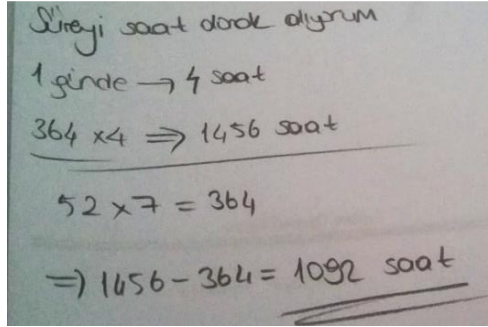 Süreyi saat olarak alıyorum
1 günde → 4 saat
364 x4 ⇒ 1456 saat
52 x 7 = 364
⇒ 1456 - 364 = 1092 saat